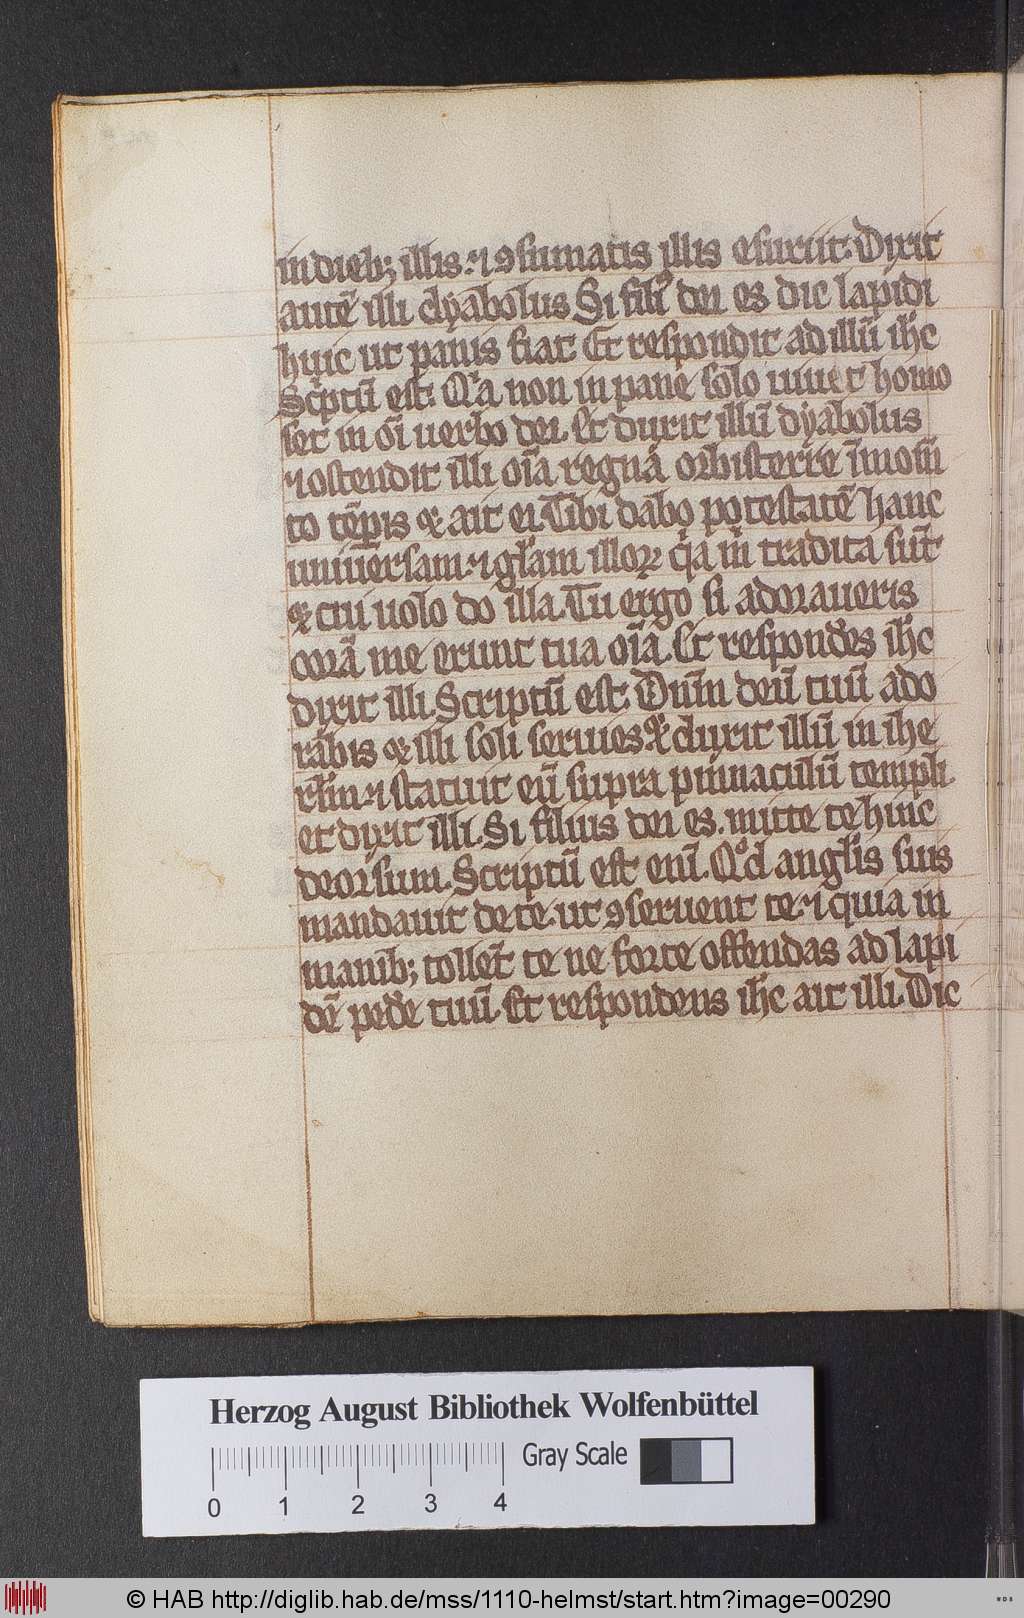 in dieb; illis. ⁊ ꝯsumatis illis esuriit. Dixit
autē illi dyabolus Si filiꝰ dei es dic lapidi
huic ut panis fiat Et respondit ad illū ih̄c
Sc̓ptū est. Qͥa non in pane solo uiuet homo
set in oī uerbo dei. Et duxit illū dyabolus
⁊ ostendit illi oīa regna orbis terre ī mom̄
to tēpis ⁊ ait ei. Tibi dabo potestatē hanc
uniuersam. ⁊ gl̄am illoꝝ qͥa m̄ tradita sūt
⁊ cui uolo do illa. Tu ergo si adoraueris
corā me erunt tua oīa. Et respondēs ih̄c
dixit illi. Scriptū est. Dn̄m deū tuū ado
rabis ⁊ illi soli seruies. Et duxit illū in ihe
rl̄m. ⁊ statuit eū supra pinnaculū templi.
et dixit illi. Si filius dei es. mitte te huic
deorsum. Scriptū est enī. Qͦd angl̄is suis
mandauit de te. ut ꝯseruent te. ⁊ quia in
manib; tollēt te ne forte offendas ad lapi
dē pedē tuū. Et respondens ih̄c ait illi. Dic
Herzog August Bibliothek Wolfenbüttel
Gray Scale
0 1 2 3 4
© HAB http://diglib.hab.de/mss/1110-helmst/start.htm?image=00290